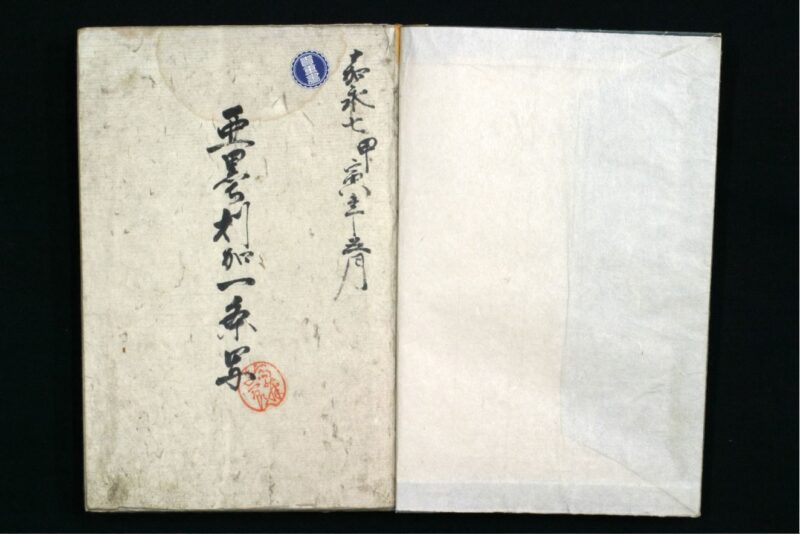 嘉永七甲寅歳正月
亜墨利加一条写